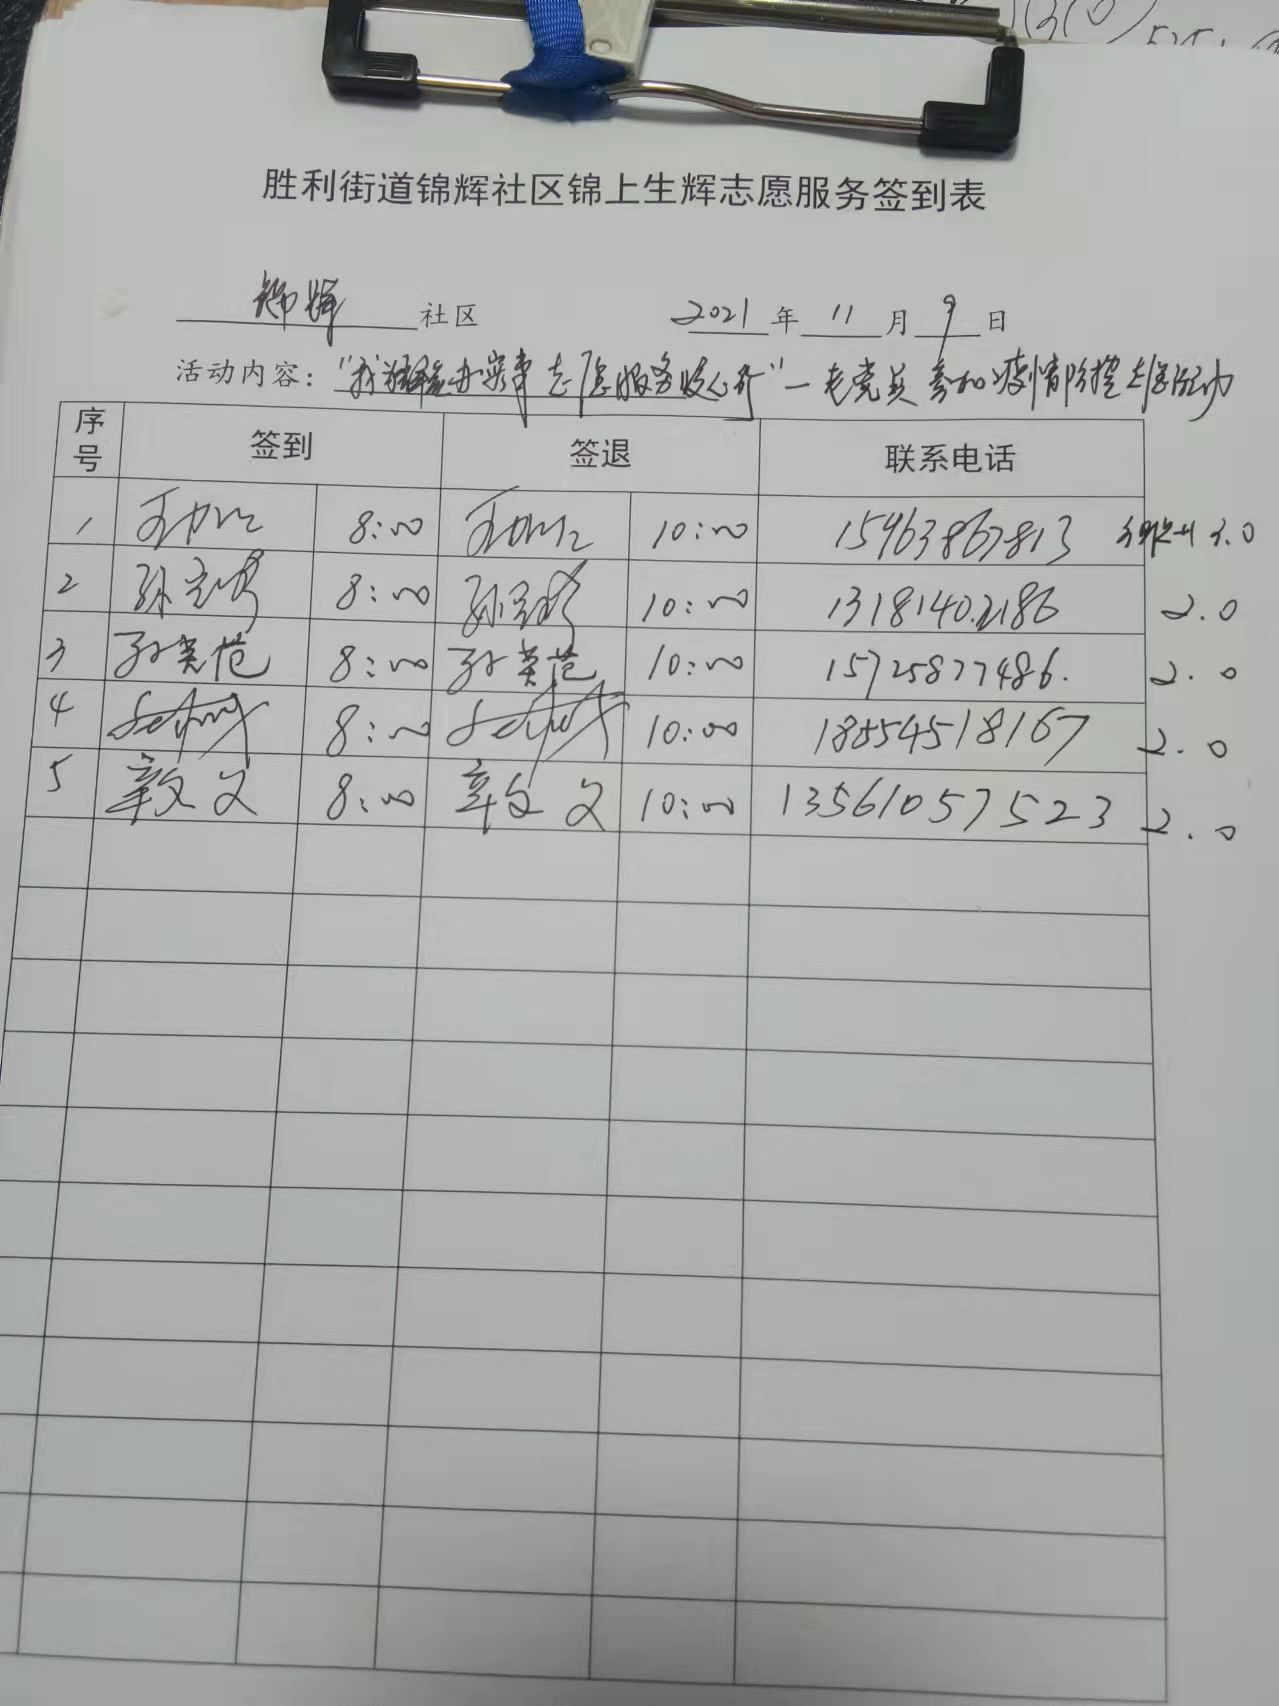 胜利街道锦辉社区锦上生辉志愿服务签到表
锦辉 社区 2021 年 11 月 9 日
活动内容：“我为群众办实事 志愿服务暖心行”—老党员参加疫情防控志愿活动
序号 签到 签退 联系电话
1 8:00 10:00 15963867813 2.0
2 孙 8:00 孙 10:00 13181402186 2.0
3 孙英范 8:00 孙英范 10:00 15725877486. 2.0
4 8:00 10:00 18854518167 2.0
5 文 8:00 文 10:00 13561057523 2.0